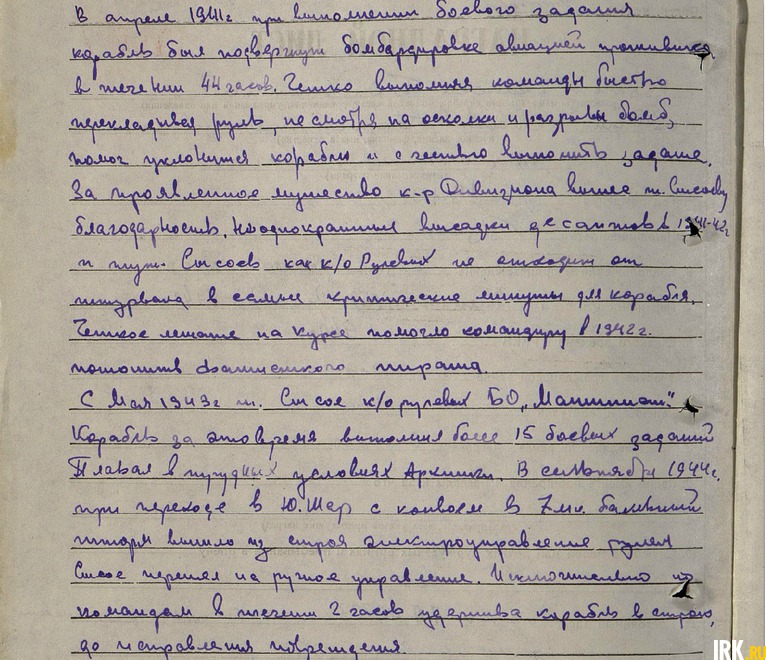 В апреле 1941г при выполнении боевого задания
корабль был подвергнут бомбардировке авиацией противника
в течении 44 часов. Четко выполняя команды быстро
перекладывая руль, не смотря на осколки и разрывы бомб,
помог уклонится кораблю и с честью выполнить задание.
За проявленное мужество к-р Дивизиона вынес т. Сысоеву
благодарность. Неоднократния высадки десантов в 1941-42г
и т. Сысоев как к/о Рулевых не отходил от
штурвала в самые критические минуты для корабля.
Четкое лежание на курсе помогло командиру в 1942г.
потопить фашисткого пирата.
С Мая 1943г т. Сысоев к/о рулевых БО
Корабль за это время выполнил более 15 боевых заданий
Плавал в трудных условиях Арктики. В сентябри 1944г.
при переходе в Ю.Шар с конвоем в 7ми бальный
шторм вышло из строя электроуправление рулем
Сысоев перешел на ручное управление. Исключительно по
командам в течении 2 часов удерживал корабль в строю,
до исправления повреждения.
IRK.RU